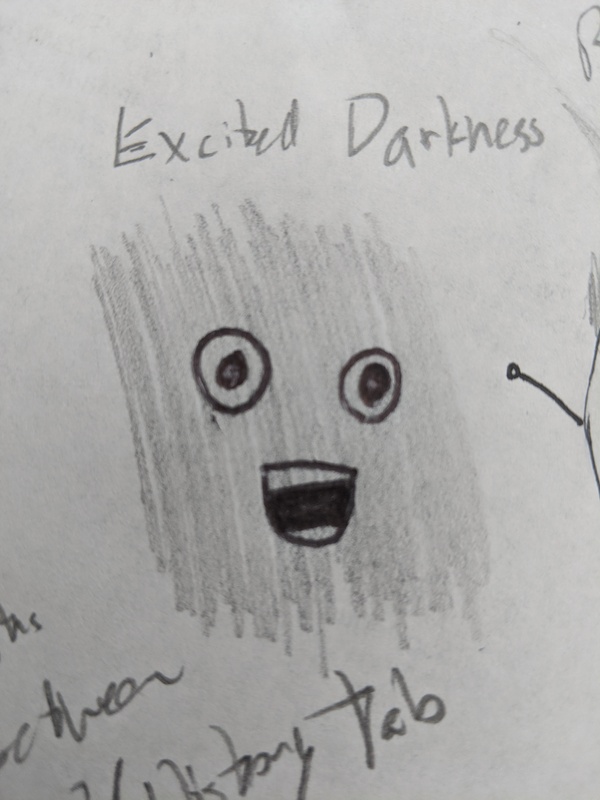 Excited Darkness
between
History Tab